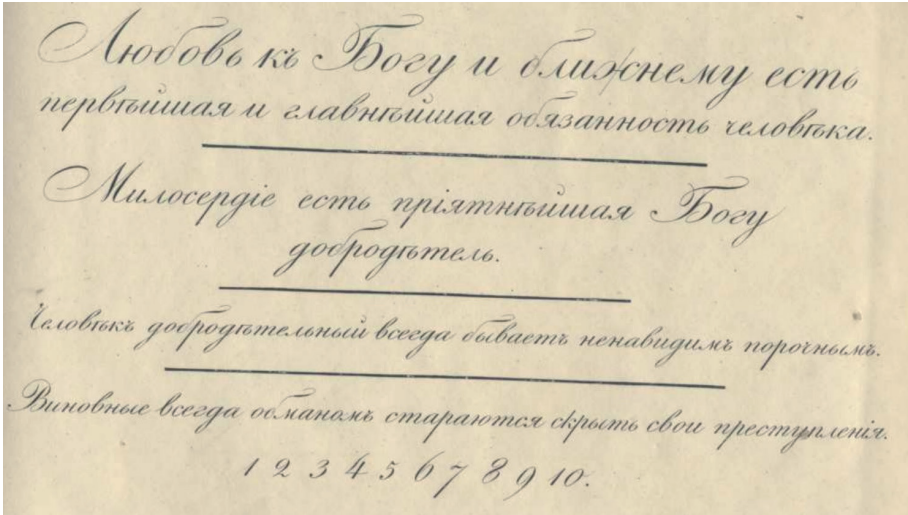 Любовь къ Богу и ближнему есть
первѣйшая и главнѣйшая обязанность человѣка.
Милосердіе есть пріятнѣйшая Богу
добродѣтель.
Человѣкъ добродѣтельный всегда бываетъ ненавидимъ порочнымъ.
Виновные всегда обманомъ стараются скрыть свои преступленія.
1 2 3 4 5 6 7 8 9 10.